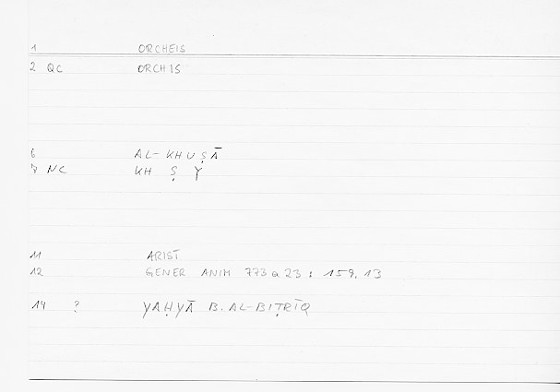 1 ORCHEIS
2 QC ORCHIS
6 AL-KHUṢĀ
7 NC KH Ṣ Y
11 ARIST
12 GENER ANIM 773 a 23 : 159, 13
14 ? YAḤYĀ B. AL-BIṬRĪQ